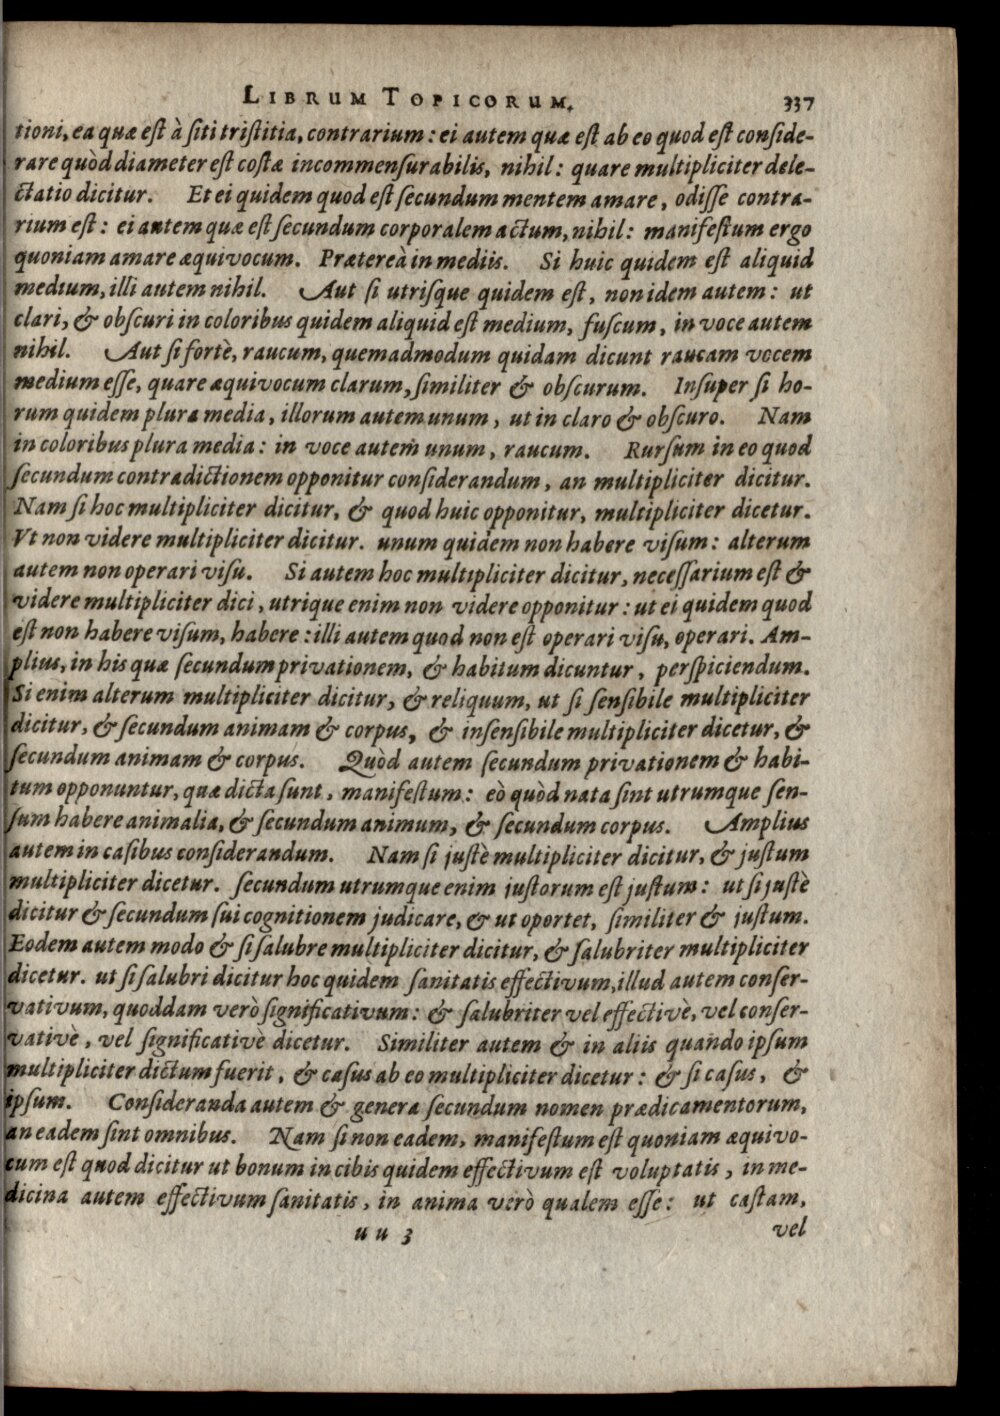 LIBRUM TOPICORUM. 337
tioni, ea quæ est à siti tristitia, contrarium: ei autem quæ est ab eo quod est conside-
rare quòd diameter est costæ incommensurabilis, nihil: quare multipliciter dele-
ctatio dicitur. Et ei quidem quod est secundum mentem amare, odisse contra-
rium est: ei autem quæ est secundum corporalem actum, nihil: manifestum ergo
quoniam amare æquivocum. Prætereà in mediis. Si huic quidem est aliquid
medium, illi autem nihil. Aut si utrisque quidem est, non idem autem: ut
clari, & obscuri in coloribus quidem aliquid est medium, fuscum, in voce autem
nihil. Aut si fortè, raucum, quemadmodum quidam dicunt raucam vocem
medium esse, quare æquivocum clarum, similiter & obscurum. Insuper si ho-
rum quidem plura media, illorum autem unum, ut in claro & obscuro. Nam
in coloribus plura media: in voce autem unum, raucum. Rursum in eo quod
secundum contradictionem opponitur considerandum, an multipliciter dicitur.
Nam si hoc multipliciter dicitur, & quod huic opponitur, multipliciter dicetur.
Vt non videre multipliciter dicitur. unum quidem non habere visum: alterum
autem non operari visu. Si autem hoc multipliciter dicitur, necessarium est &
videre multipliciter dici, utrique enim non videre opponitur: ut ei quidem quod
est non habere visum, habere: illi autem quod non est operari visu, operari. Am-
plius, in his quæ secundum privationem, & habitum dicuntur, perspiciendum.
Si enim alterum multipliciter dicitur, & reliquum, ut si sensibile multipliciter
dicitur, & secundum animam & corpus, & insensibile multipliciter dicetur, &
secundum animam & corpus. Quòd autem secundum privationem & habi-
tum opponuntur, quæ dicta sunt, manifestum: eò quòd nata sint utrumque sen-
sum habere animalia, & secundum animum, & secundum corpus. Amplius
autem in casibus considerandum. Nam si justè multipliciter dicitur, & justum
multipliciter dicetur. secundum utrumque enim justorum est justum: ut si justè
dicitur & secundum sui cognitionem judicare, & ut oportet, similiter & justum.
Eodem autem modo & si salubre multipliciter dicitur, & salubriter multipliciter
dicetur. ut si salubri dicitur hoc quidem sanitatis effectivum, illud autem conser-
vativum, quoddam verò significativum: & salubriter vel effectivè, vel conser-
vativè, vel significativè dicetur. Similiter autem & in aliis quando ipsum
multipliciter dictum fuerit, & casus ab eo multipliciter dicetur: & si casus, &
ipsum. Consideranda autem & genera secundum nomen prædicamentorum,
an eadem sint omnibus. Nam si non eadem, manifestum est quoniam æquivo-
cum est quod dicitur ut bonum in cibis quidem effectivum est voluptatis, in me-
dicina autem effectivum sanitatis, in anima verò qualem esse: ut castam,
uu 3 vel